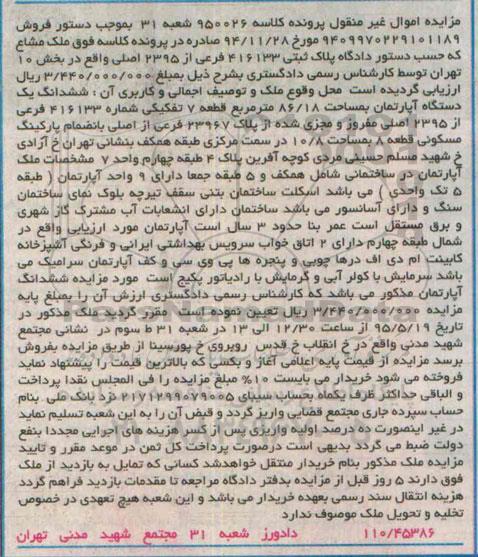 مزایده اموال غیر منقول پرونده کلاسه ۹۵۰۰۲۶ شعبه ۳۱ بموجب دستور فروش
۹۴۰۹۹۷۰۲۲۹۱۰۱۱۸۹ مورخ ۹۴/۱۱/۲۸ صادره در پرونده کلاسه فوق ملک مشاع
که حسب دستور دادگاه پلاک ثبتی ۴۱۶۱۳۳ فرعی از ۲۳۹۵ اصلی واقع در بخش ۱۰
تهران توسط کارشناس رسمی دادگستری بشرح ذیل بمبلغ ۳/۴۴۰/۰۰۰/۰۰۰ ریال
ارزیابی گردیده است محل وقوع ملک و توصیف اجمالی و کاربری آن : ششدانگ یک
دستگاه آپارتمان بمساحت ۸۶/۱۸ مترمربع قطعه ۷ تفکیکی شماره ۴۱۶۱۳۳ فرعی
از ۲۳۹۵ اصلی مفروز و مجزی شده از پلاک ۲۳۹۶۷ فرعی از اصلی بانضمام پارکینگ
مسکونی قطعه ۸ بمساحت ۱۰/۸ در سمت مرکزی طبقه همکف بنشانی تهران خ آزادی
خ شهید مسلم حسینی مردی کوچه آفرین پلاک ۴ طبقه چهارم واحد ۷ مشخصات ملک
آپارتمان در ساختمانی شامل همکف و ۵ طبقه جمعا دارای ۹ واحد آپارتمان ( طبقه
۵ تک واحدی ) می باشد اسکلت ساختمان بتنی سقف تیرچه بلوک نمای ساختمان
سنگ و دارای آسانسور می باشد ساختمان دارای انشعابات آب مشترک گاز شهری
و برق مستقل است عمر بنا حدود ۳ سال است آپارتمان مورد ارزیابی واقع در
شمال طبقه چهارم دارای ۲ اتاق خواب سرویس بهداشتی ایرانی و فرنگی آشپزخانه
کابینت ام دی اف درها چوبی و پنجره ها پی وی سی و کف آپارتمان سرامیک می
باشد سرمایش با کولر آبی و گرمایش با رادیاتور پکیج است مورد مزایده ششدانگ
آپارتمان مذکور می باشد که کارشناس رسمی دادگستری ارزش آن را بمبلغ پایه
مزایده ۳/۴۴۰/۰۰۰/۰۰۰ ریال تعیین نموده است مقرر گردید ملک مذکور در
تاریخ ۹۵/۵/۱۹ از ساعت ۱۲/۳۰ الی ۱۳ در شعبه ۳۱ ط سوم در نشانی مجتمع
شهید مدنی واقع در خ انقلاب خ قدس روبروی خ پورسینا از طریق مزایده بفروش
برسد مزایده از قیمت پایه اعلامی آغاز و بکسی که بالاترین قیمت را پیشنهاد نماید
فروخته می شود خریدار می بایست ۱۰% مبلغ مزایده را فی المجلس نقدا پرداخت
و الباقی حداکثر ظرف یکماه بحساب سیبای ۲۱۷۱۲۹۹۰۷۹۰۰۵ نزد بانک ملی بنام
حساب سپرده جاری مجتمع قضایی واریز گردد و قبض آن را به این شعبه تسلیم نماید
در غیر اینصورت ده درصد اولیه واریزی پس از کسر هزینه های اجرایی مجددا بنفع
دولت ضبط می گردد بدیهی است درصورت پرداخت کل ثمن در موعد مقرر و تایید
مزایده ملک مذکور بنام خریدار منتقل خواهدشد کسانی که تمایل به بازدید از ملک
فوق دارند ۵ روز قبل از مزایده بدفتر دادگاه مراجعه تا مقدمات بازدید فراهم گردد
هزینه انتقال سند رسمی بعهده خریدار می باشد و این شعبه هیچ تعهدی در خصوص
تخلیه و تحویل ملک موصوف ندارد
۱۱۰/۴۵۳۸۶ دادورز شعبه ۳۱ مجتمع شهید مدنی تهران